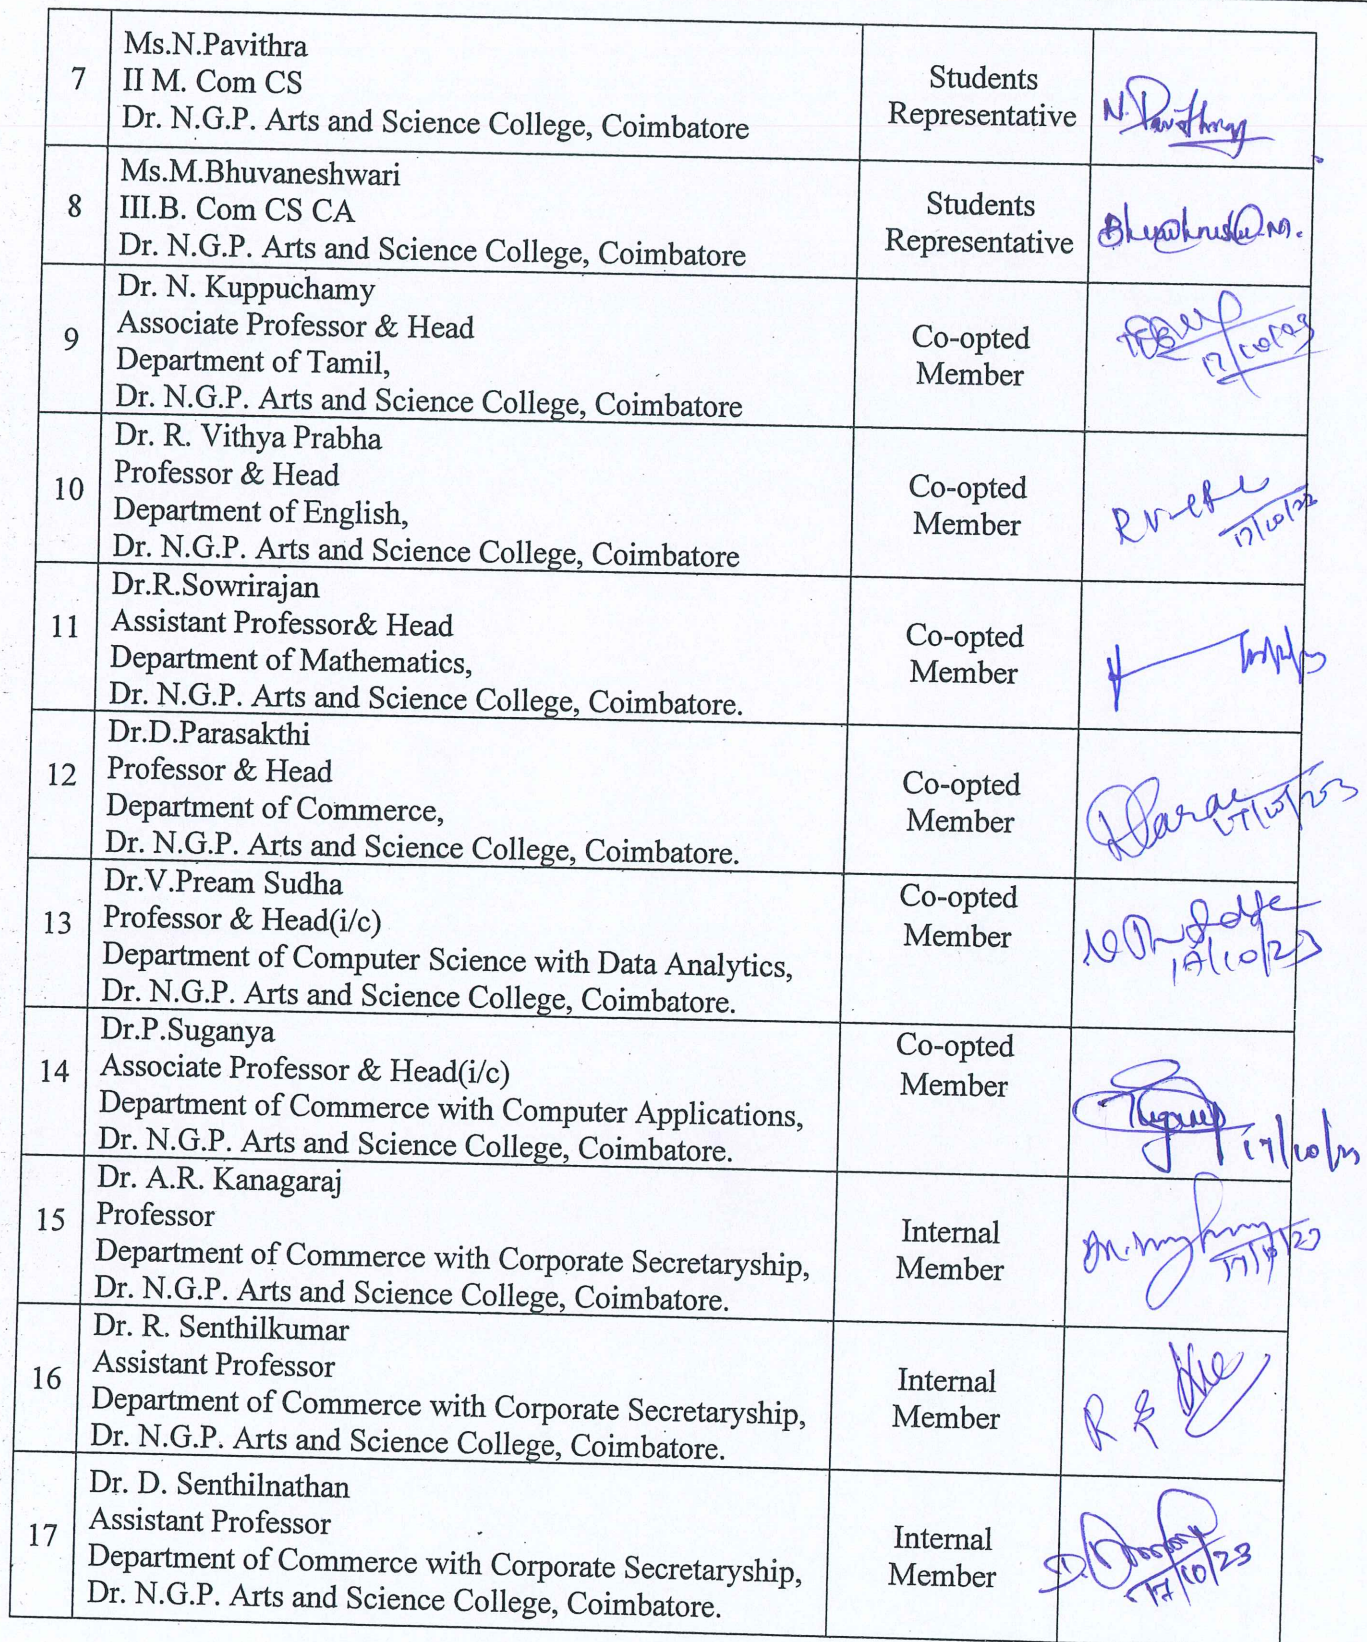 7
Ms.N.Pavithra
II M. Com CS
Dr. N.G.P. Arts and Science College, Coimbatore
Students
Representative
N. Pavithra
8
Ms.M.Bhuvaneshwari
III.B. Com CS CA
Dr. N.G.P. Arts and Science College, Coimbatore
Students
Representative
9
Dr. N. Kuppuchamy
Associate Professor & Head
Department of Tamil,
Dr. N.G.P. Arts and Science College, Coimbatore
Co-opted
Member
17/10/23
10
Dr. R. Vithya Prabha
Professor & Head
Department of English,
Dr. N.G.P. Arts and Science College, Coimbatore
Co-opted
Member
17/10/23
11
Dr.R.Sowrirajan
Assistant Professor& Head
Department of Mathematics,
Dr. N.G.P. Arts and Science College, Coimbatore.
Co-opted
Member
12
Dr.D.Parasakthi
Professor & Head
Department of Commerce,
Dr. N.G.P. Arts and Science College, Coimbatore.
Co-opted
Member
13
Dr.V.Pream Sudha
Professor & Head(i/c)
Department of Computer Science with Data Analytics,
Dr. N.G.P. Arts and Science College, Coimbatore.
Co-opted
Member
17/10/23
14
Dr.P.Suganya
Associate Professor & Head(i/c)
Department of Commerce with Computer Applications,
Dr. N.G.P. Arts and Science College, Coimbatore.
Co-opted
Member
17/10/23
15
Dr. A.R. Kanagaraj
Professor
Department of Commerce with Corporate Secretaryship,
Dr. N.G.P. Arts and Science College, Coimbatore.
Internal
Member
17/10/23
16
Dr. R. Senthilkumar
Assistant Professor
Department of Commerce with Corporate Secretaryship,
Dr. N.G.P. Arts and Science College, Coimbatore.
Internal
Member
17
Dr. D. Senthilnathan
Assistant Professor
Department of Commerce with Corporate Secretaryship,
Dr. N.G.P. Arts and Science College, Coimbatore.
Internal
Member
17/10/23